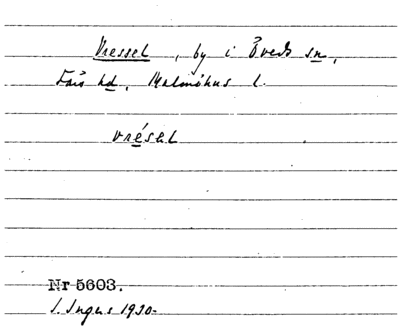 Vressel, by i Öveds sn,
Färs hd, Malmöhus l.
vrésəl
Nr 5603.
S. Ingers 1930.